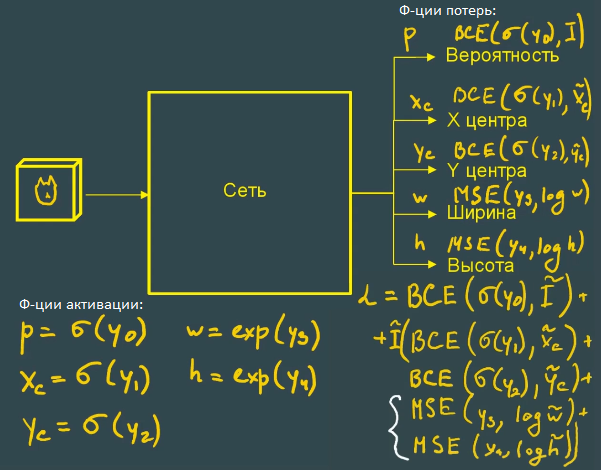 Ф-ции потерь:
p BCE(σ(y0), I)
Вероятность
xc BCE(σ(y1), x̃c)
X центра
yc BCE(σ(y2), ỹc)
Y центра
w MSE(y3, log w)
Ширина
h MSE(y4, log h)
Высота
Сеть
Ф-ции активации:
p = σ(y0)
w = exp(y3)
xc = σ(y1)
h = exp(y4)
yc = σ(y2)
L = BCE(σ(y0), Ĩ) +
+ Î(BCE(σ(y1), x̃c) +
BCE(σ(y2), ỹc) +
MSE(y3, log w̃) +
MSE(y4, log h̃))